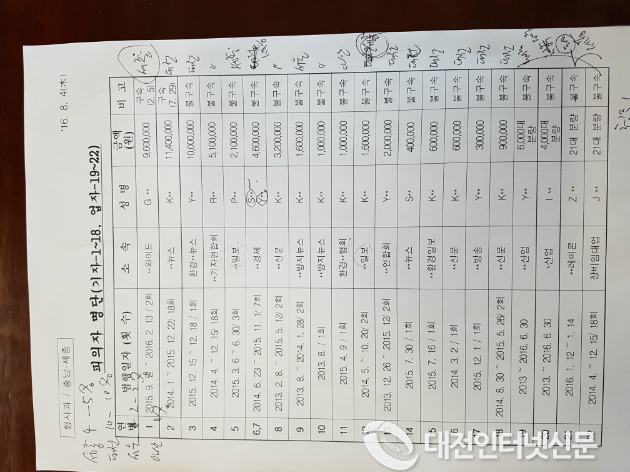 형사과 / 충남 세종
피의자 명단(기자-1~18. 업자-19~22)
'16. 8. 4(木)
연번 범행일자 (횟 수) 소 속 성 명 금액(원) 비 고
1 2015. 9. ~ 2016. 2. 13 / 2회 **와이드 G** 9,600,000 구속 (2. 5)
2 2014. 1 ~ 2015. 12. 22/ 18회 **뉴스 K** 11,400,000 구속 (7. 29)
3 2015. 12. 15 ~ 12. 18 / 1회 환경**뉴스 Y** 10,000,000 불구속
4 2014. 4. ~ 12. 15/ 18회 **기자연합회 R** 5,100,000 불구속
5 2015. 3. 6 ~ 6. 30/ 3회 **일보 P** 2,100,000 불구속
6,7 2014. 6. 23 ~ 2015. 11. 1/ 7회 **경제 S** Y** 4,600,000 불구속
8 2013. 2. 8. ~ 2015. 5. 12/ 2회 **신문 K** 3,200,000 불구속
9 2013. 8. ~ 2014. 1. 28/ 2회 **방지뉴스 K** 1,600,000 불구속
10 2013. 8. / 1회 **방지뉴스 K** 1,000,000 불구속
11 2015. 4. 9 / 1회 환경**협회 K** 1,000,000 불구속
2014. 5. ~ 10. 20/ 2회 **일보 K** 1,600,000 불구속
2013. 12. 26 ~ 2015. 12/ 2회 **연합회 Y** 2,000,000 불구속
14 2015. 7. 30 / 1회 **뉴스 S** 400,000 불구속
2015. 7. 16 / 1회 **환경일보 K** 600,000 불구속
2014. 3. 2 / 1회 **신문 K** 600,000 불구속
2015. 12. 1 / 1회 **방송 Y** 300,000 불구속
2014. 8. 30 ~ 2015. 5. 26/ 2회 **신문 K** 900,000 불구속
2013 ~ 2016. 6. 30 **산업 Y** 6,000대 분량 불구속
2013. ~ 2016. 6. 30 *산업 I** 4,000대 분량 불구속
2016. 1. 12 ~ 1. 14 **레미콘 Z** 21대 분량 불구속
2014. 4. ~ 12. 15/ 18회 장비임대업 J** 21대 분량 불구속
대전인터넷신문